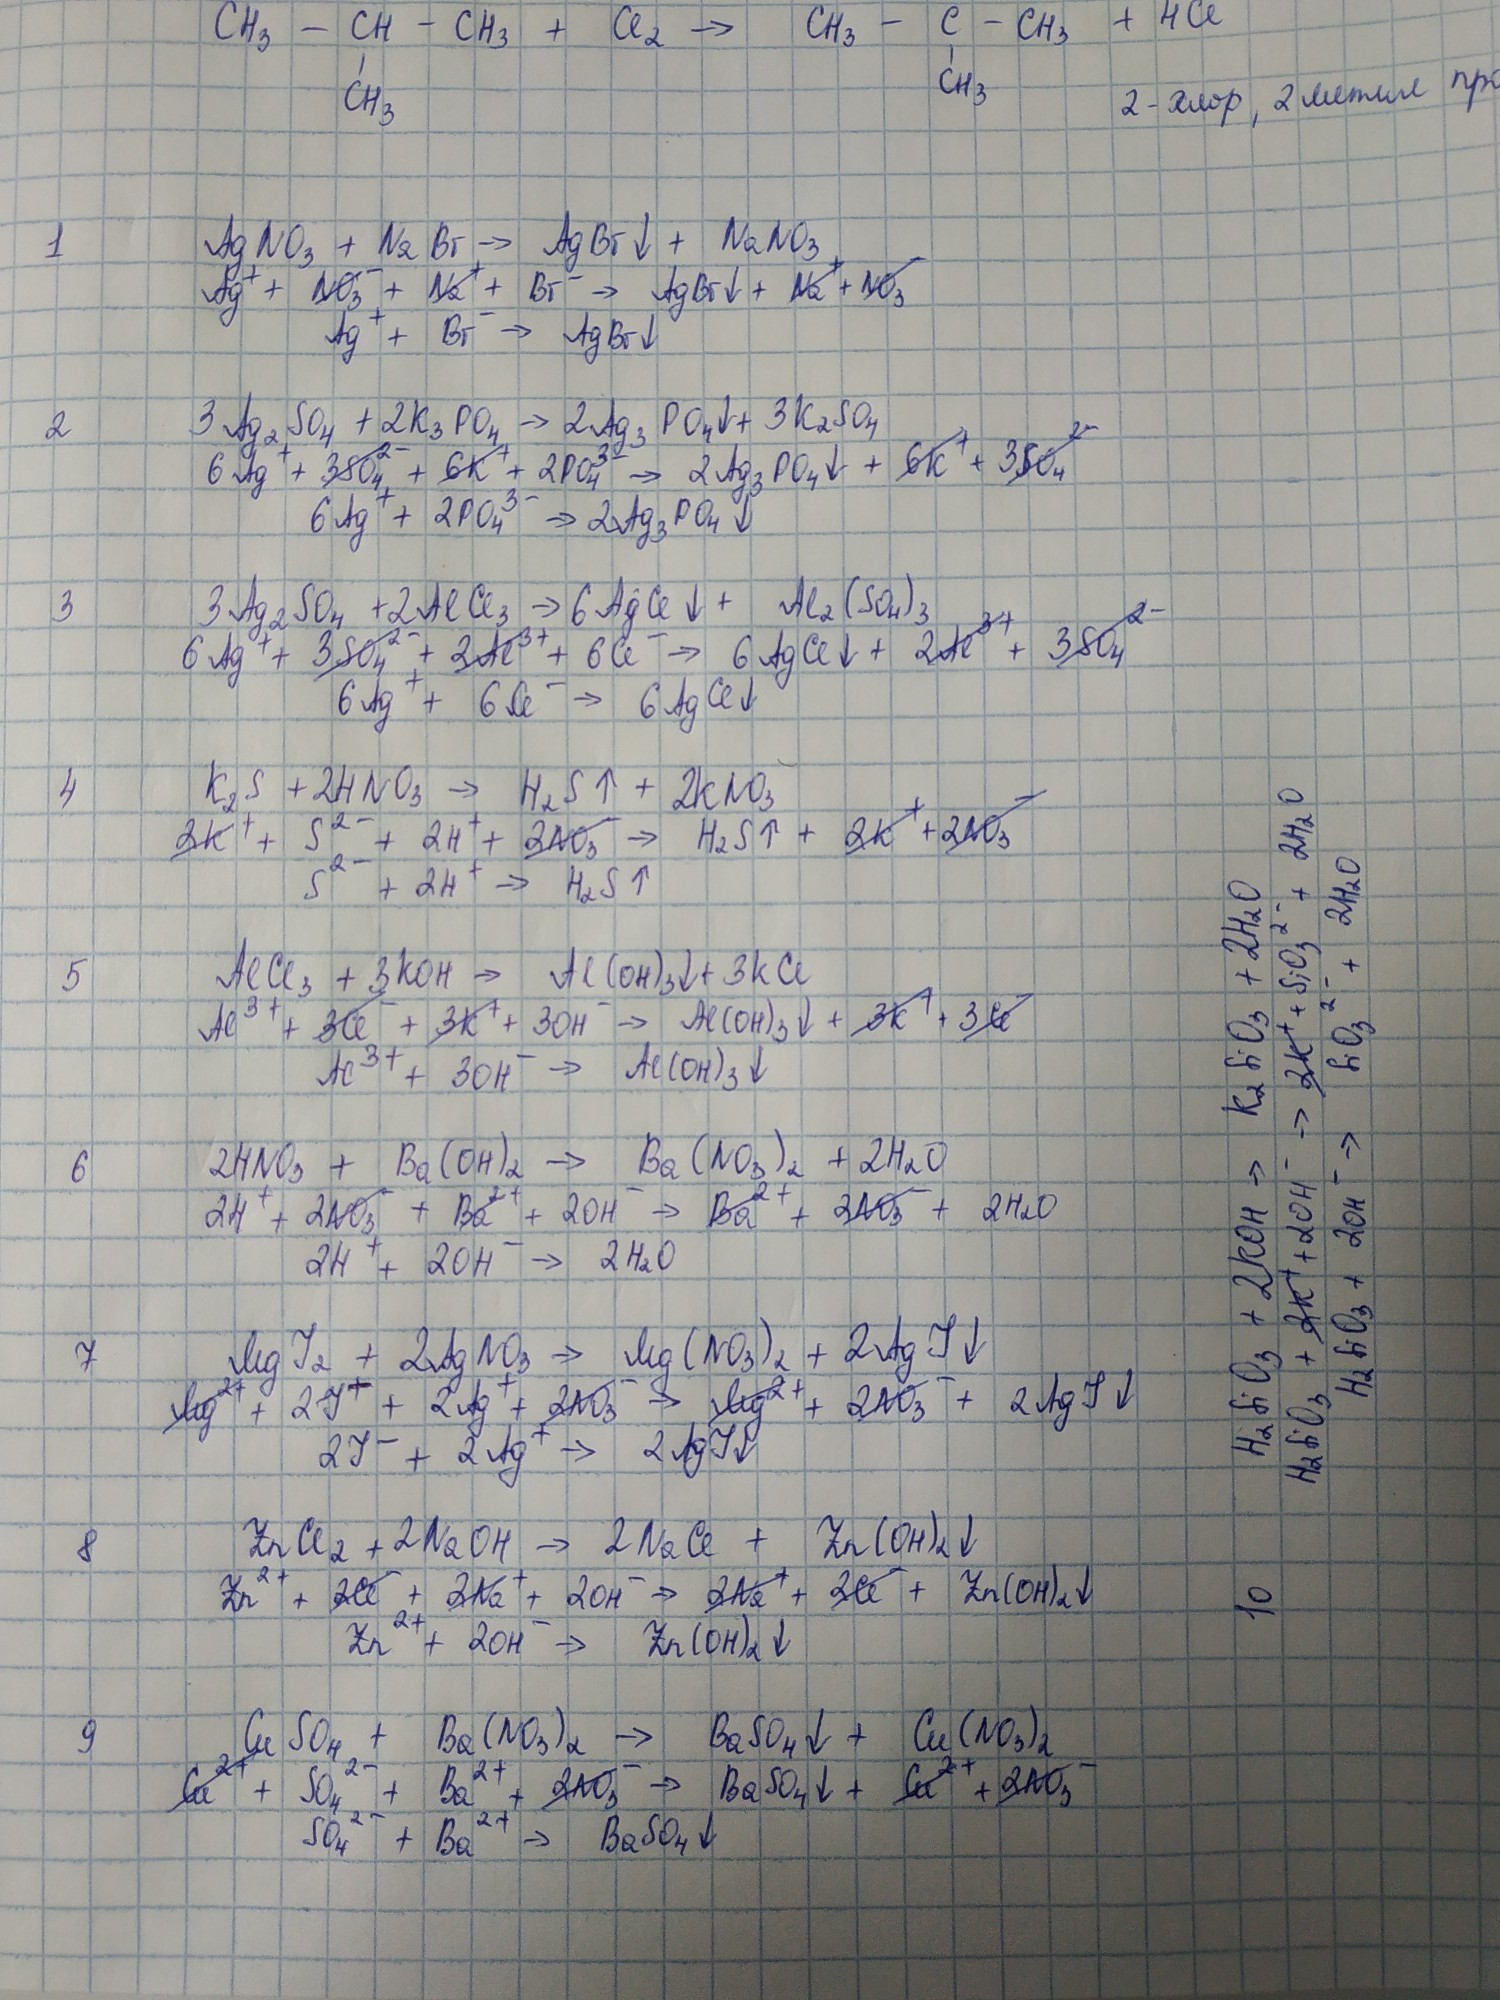 CH₃ – CH – CH₃ + Cl₂ → CH₃ – C – CH₃ + HCl
CH₃ CH₃
2-хлор, 2 метил про
1 AgNO₃ + NaBr → AgBr↓ + NaNO₃
Ag⁺ + NO₃⁻ + Na⁺ + Br⁻ → AgBr↓ + Na⁺ + NO₃⁻
Ag⁺ + Br⁻ → AgBr↓
2 3Ag₂SO₄ + 2K₃PO₄ → 2Ag₃PO₄↓ + 3K₂SO₄
6Ag⁺ + 3SO₄²⁻ + 6K⁺ + 2PO₄³⁻ → 2Ag₃PO₄↓ + 6K⁺ + 3SO₄²⁻
6Ag⁺ + 2PO₄³⁻ → 2Ag₃PO₄↓
3 3Ag₂SO₄ + 2AlCl₃ → 6AgCl↓ + Al₂(SO₄)₃
6Ag⁺ + 3SO₄²⁻ + 2Al³⁺ + 6Cl⁻ → 6AgCl↓ + 2Al³⁺ + 3SO₄²⁻
6Ag⁺ + 6Cl⁻ → 6AgCl↓
4 K₂S + 2HNO₃ → H₂S↑ + 2KNO₃
2K⁺ + S²⁻ + 2H⁺ + 2NO₃⁻ → H₂S↑ + 2K⁺ + 2NO₃⁻
S²⁻ + 2H⁺ → H₂S↑
5 AlCl₃ + 3KOH → Al(OH)₃↓ + 3KCl
Al³⁺ + 3Cl⁻ + 3K⁺ + 3OH⁻ → Al(OH)₃↓ + 3K⁺ + 3Cl⁻
Al³⁺ + 3OH⁻ → Al(OH)₃↓
6 2HNO₃ + Ba(OH)₂ → Ba(NO₃)₂ + 2H₂O
2H⁺ + 2NO₃⁻ + Ba²⁺ + 2OH⁻ → Ba²⁺ + 2NO₃⁻ + 2H₂O
2H⁺ + 2OH⁻ → 2H₂O
7 MgJ₂ + 2AgNO₃ → Mg(NO₃)₂ + 2AgJ↓
Mg²⁺ + 2J⁻ + 2Ag⁺ + 2NO₃⁻ → Mg²⁺ + 2NO₃⁻ + 2AgJ↓
2J⁻ + 2Ag⁺ → 2AgJ↓
8 ZnCl₂ + 2NaOH → 2NaCl + Zn(OH)₂↓
Zn²⁺ + 2Cl⁻ + 2Na⁺ + 2OH⁻ → 2Na⁺ + 2Cl⁻ + Zn(OH)₂↓
Zn²⁺ + 2OH⁻ → Zn(OH)₂↓
9 CuSO₄ + Ba(NO₃)₂ → BaSO₄↓ + Cu(NO₃)₂
Cu²⁺ + SO₄²⁻ + Ba²⁺ + 2NO₃⁻ → BaSO₄↓ + Cu²⁺ + 2NO₃⁻
SO₄²⁻ + Ba²⁺ → BaSO₄↓
10 H₂SiO₃ + 2KOH → K₂SiO₃ + 2H₂O
H₂SiO₃ + 2K⁺ + 2OH⁻ → 2K⁺ + SiO₃²⁻ + 2H₂O
H₂SiO₃ + 2OH⁻ → SiO₃²⁻ + 2H₂O